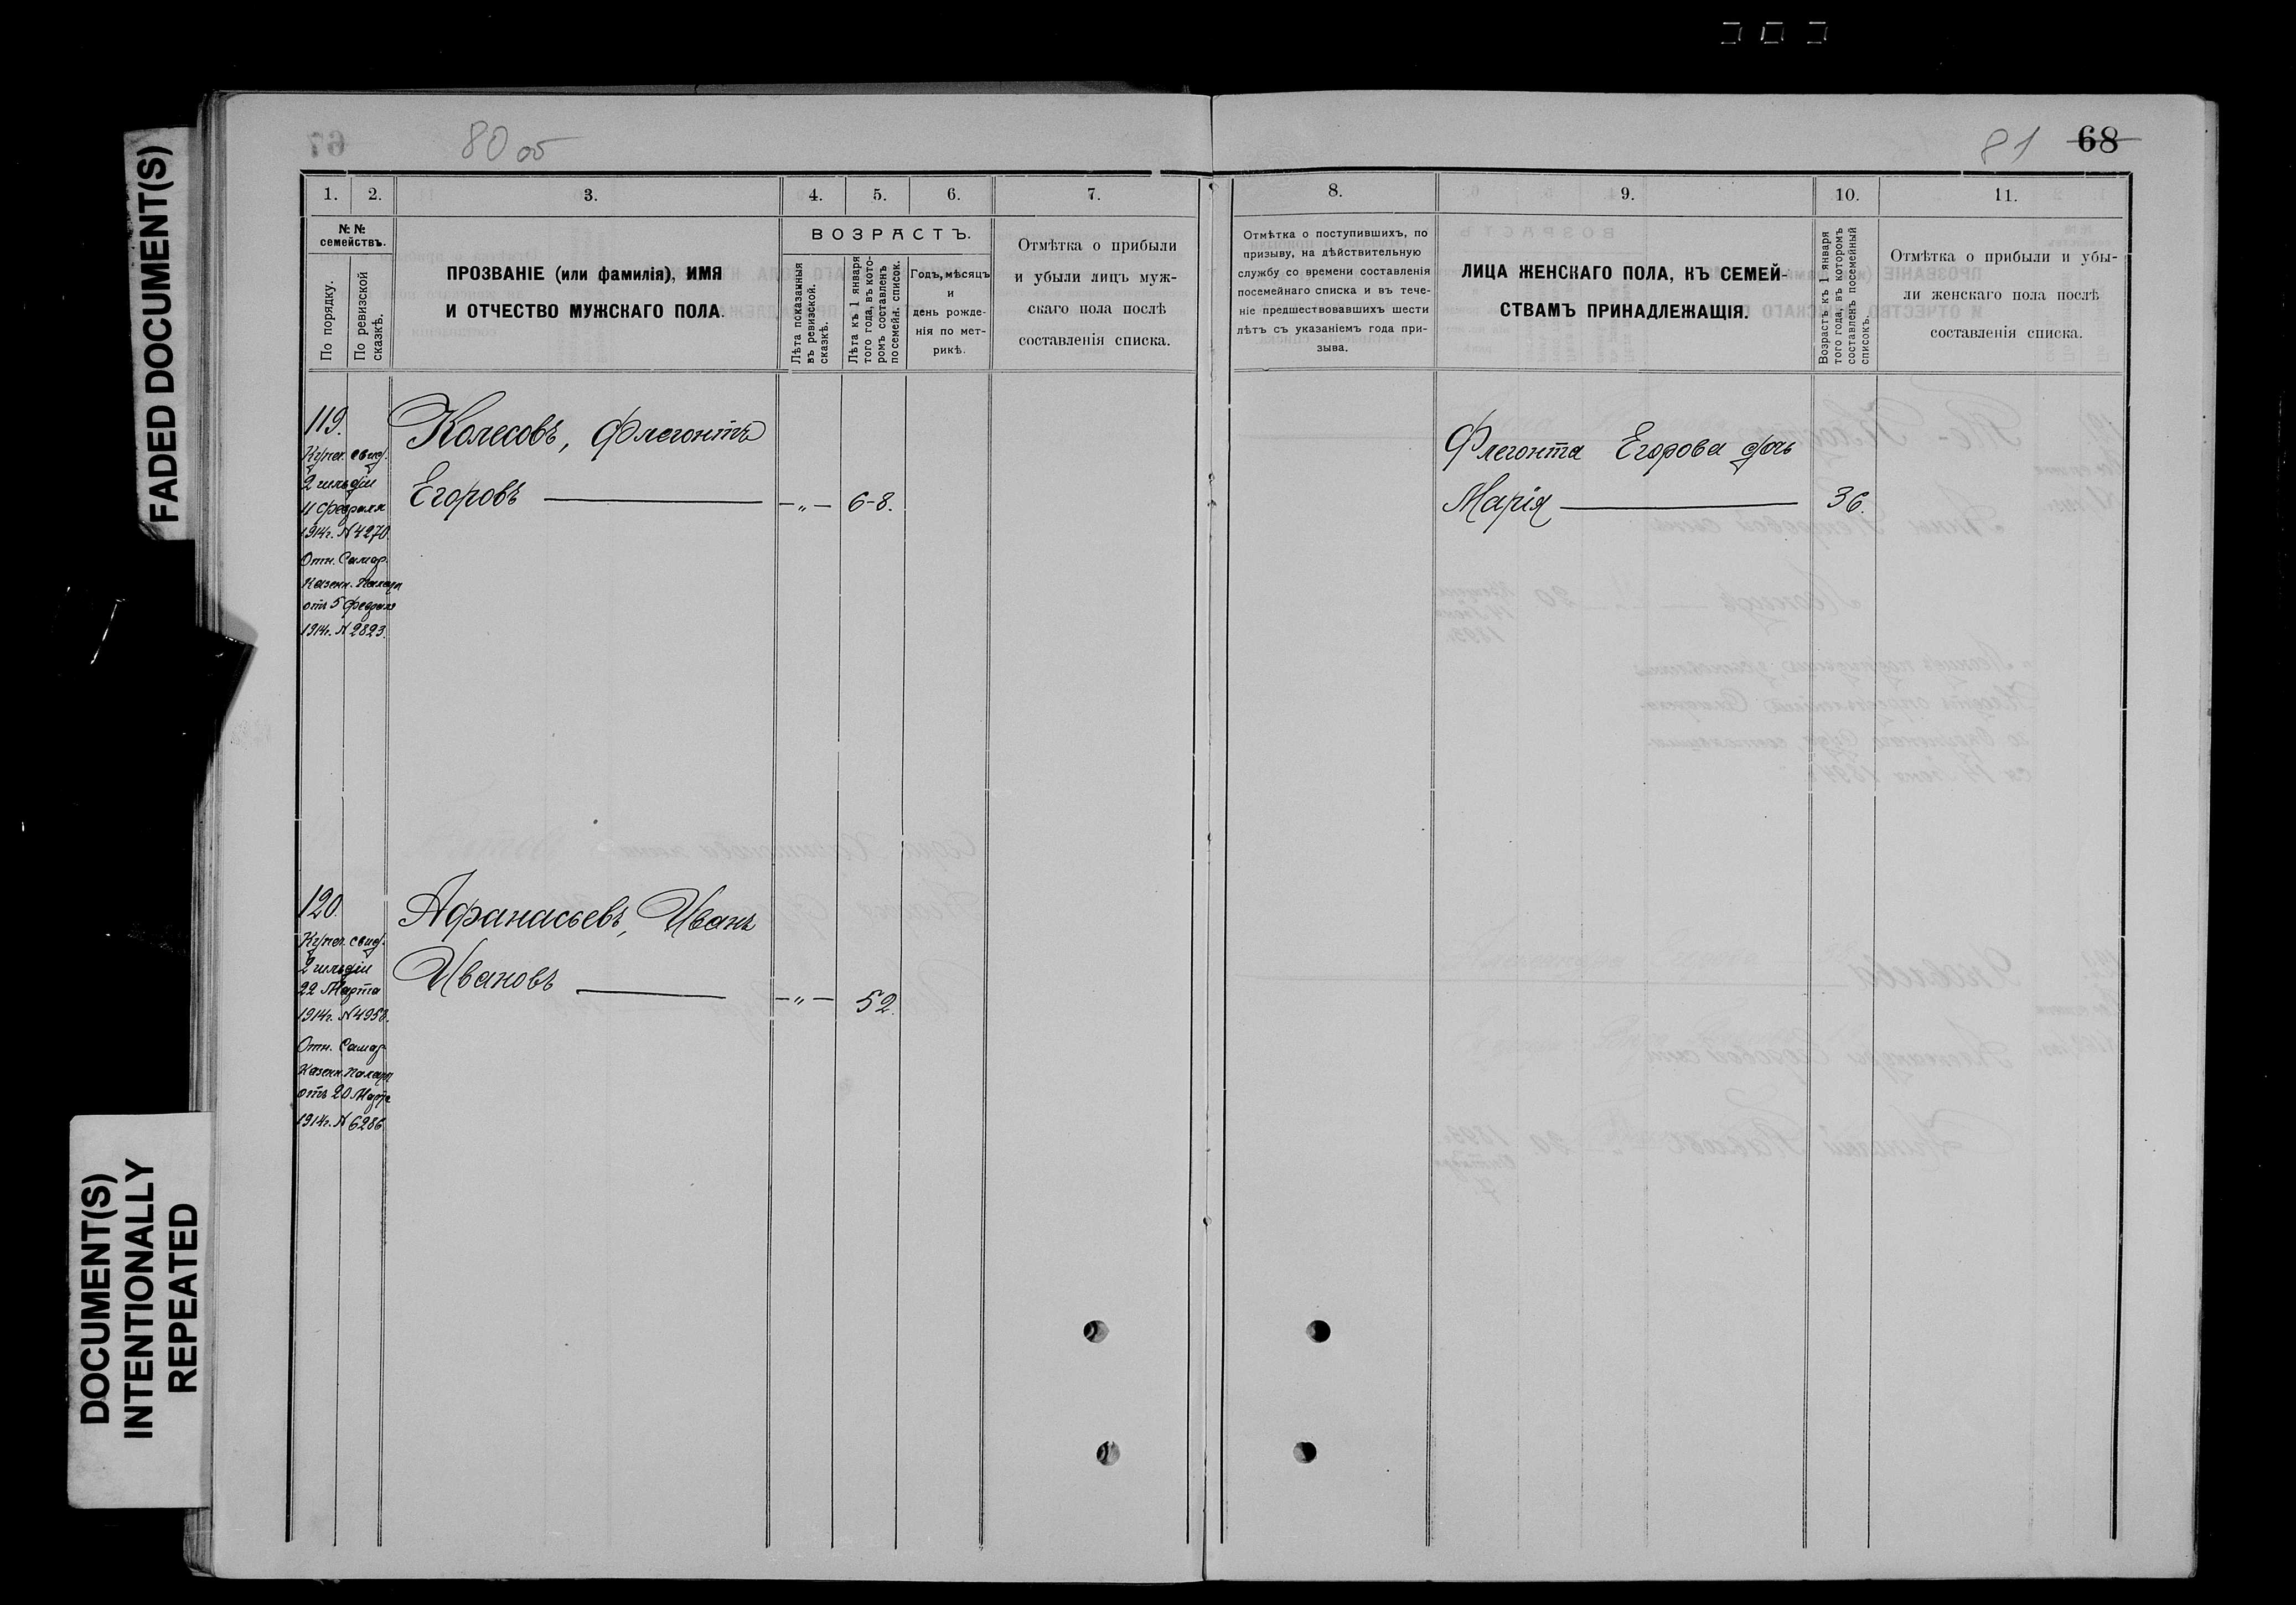 FADED DOCUMENT(S)
DOCUMENT(S)
INTENTIONALLY
REPEATED
80 об
81 68
1. 2. 3. 4. 5. 6. 7.
№ №
семействъ.
По порядку.
По ревизской
сказкѣ.
ПРОЗВАНІЕ (или фамилія), ИМЯ
И ОТЧЕСТВО МУЖСКАГО ПОЛА.
ВОЗРАСТЪ.
Лѣта показанныя
въ ревизской.
сказкѣ.
Лѣта къ 1 января
того года, въ кото-
ромъ составленъ
посемейн. список.
Годъ, мѣсяцъ
и
день рожде-
нія по мет-
рикѣ.
Отмѣтка о прибыли
и убыли лицъ муж-
скаго пола послѣ
составленія списка.
119.
Купеч. свид.
2 гильдіи
11 февраля
1914г. N 4270.
Отн. Самар.
Казенн. Палаты
отъ 5 февраля
1914г. N 2823.
Колесовъ, Флегонтъ
Егоровъ — „ — 6-8.
120.
Купеч. свид.
2 гильдіи
22 Марта
1914г. N 4958.
Отн. Самар.
Казенн. Палаты
отъ 20 Марта
1914г. N 6286
Афанасьевъ, Иванъ
Ивановъ — „ — 52.
8. 9. 10. 11.
Отмѣтка о поступившихъ, по
призыву, на дѣйствительную
службу со времени составленія
посемейнаго списка и въ тече-
ніе предшествовавшихъ шести
лѣтъ съ указаніемъ года при-
зыва.
ЛИЦА ЖЕНСКАГО ПОЛА, КЪ СЕМЕЙ-
СТВАМЪ ПРИНАДЛЕЖАЩІЯ.
Возрастъ къ 1 января
того года, въ которомъ
составленъ посемейный
списокъ.
Отмѣтка о прибыли и убы-
ли женскаго пола послѣ
составленія списка.
Флегонта Егорова дочь
Марія 36.